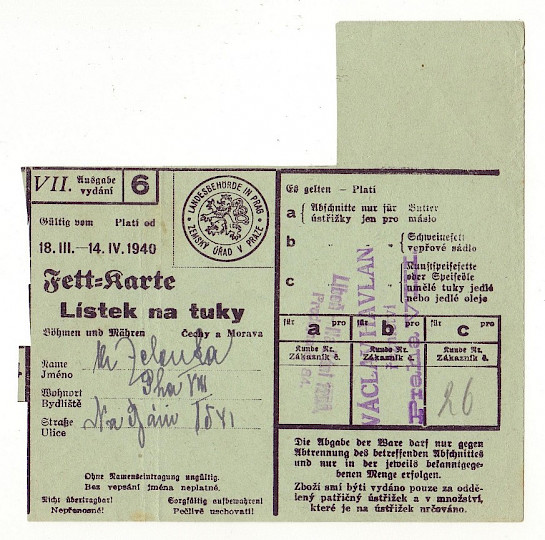 VII. Ausgabe vydání 6
LANDESBEHÖRDE IN PRAG
ZEMSKÝ ÚŘAD V PRAZE
Gültig vom Platí od
18. III.—14. IV. 1940
Fett-Karte
Lístek na tuky
Böhmen und Mähren Čechy a Morava
Name
Jméno
Wohnort
Bydliště
Pha VIII
Straße
Ulice
Ohne Namenseintragung ungültig.
Bez vepsání jména neplatné.
Nicht übertragbar! Sorgfältig aufbewahren!
Nepřenosné! Pečlivě uschovati!
Es gelten — Platí
a Abschnitte nur für Butter
ústřižky jen pro máslo
b " " Schweinefett
vepřové sádlo
c " " Kunstspeisefette oder Speiseöle
umělé tuky jedlé nebo jedlé oleje
für a pro für b pro für c pro
Kunde Nr. Kunde Nr. Kunde Nr.
Zákazník č. Zákazník č. Zákazník č.
VÁCLAV HAVLAN
26
Die Abgabe der Ware darf nur gegen
Abtrennung des betreffenden Abschnittes
und nur in der jeweils bekanntgege-
benen Menge erfolgen.
Zboží smí býti vydáno pouze za oddě-
lený patřičný ústřižek a v množství,
které je na ústřižek určováno.